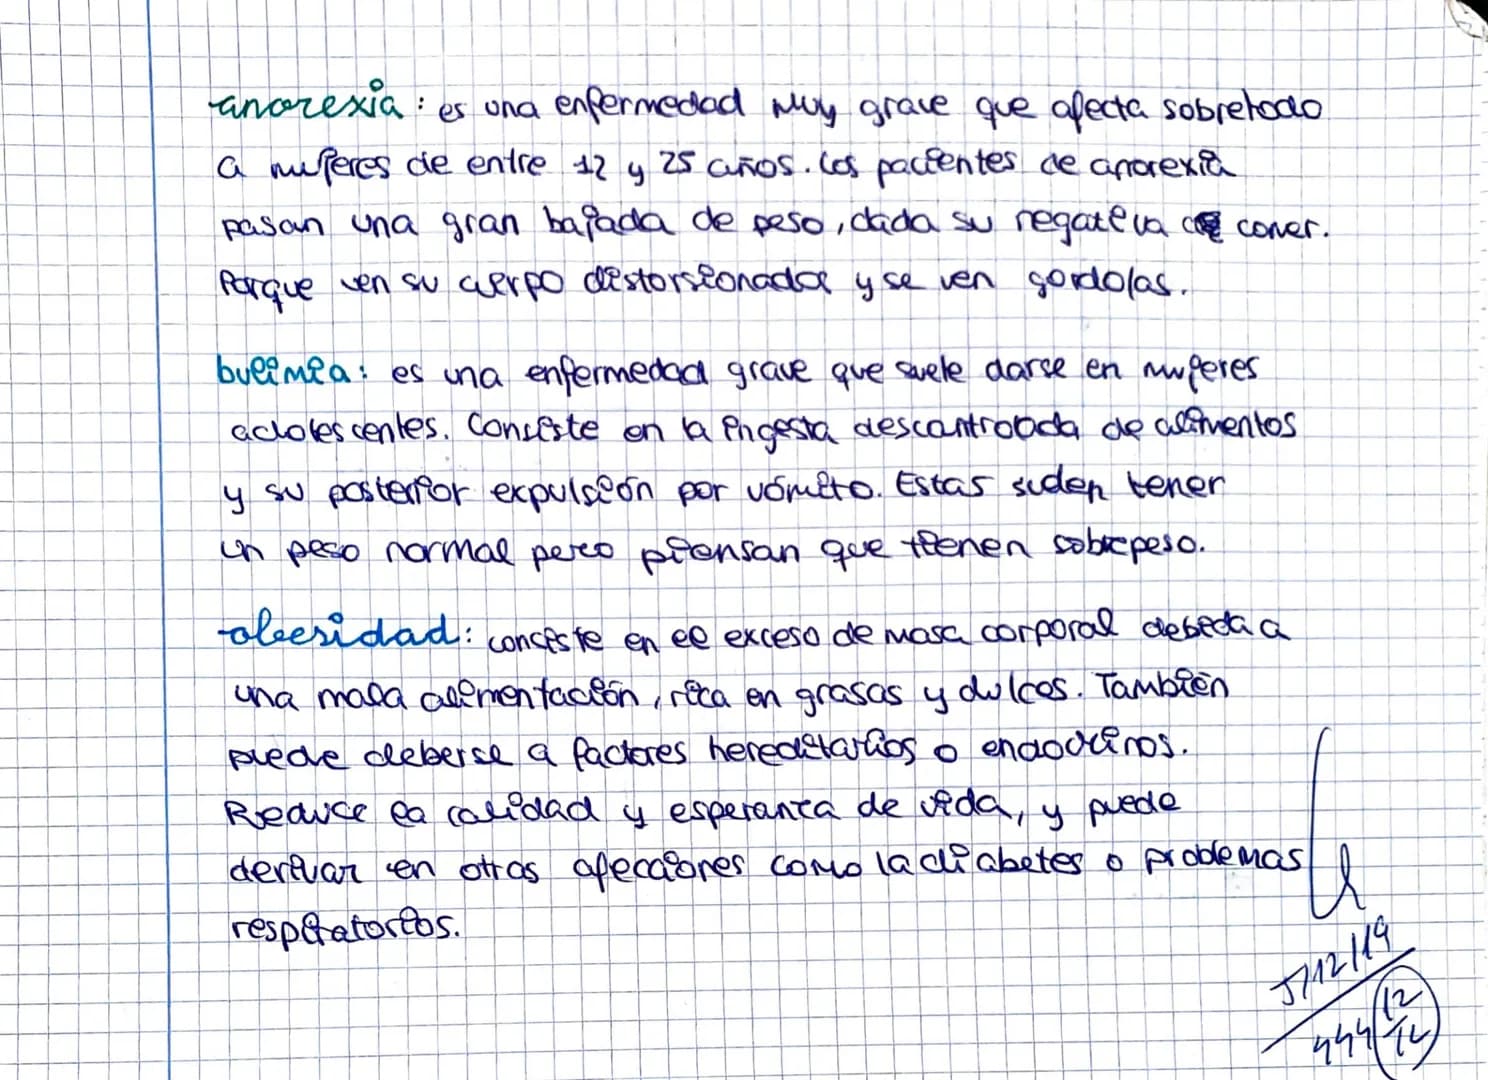 anorexia: es una enfermedad muy grave que afecta sobretodo
a mujeres de entre 12 y 25 años. Los pacientes de anorexia
pasan una gran bajada de peso, dada su negativa a comer.
Porque ven su cuerpo distorsionado y se ven gordo/as.
bulimia: es una enfermedad grave que suele darse en mujeres
adolescentes. Consiste en la ingesta descontrolada de alimentos
y su posterior expulsión por vómito. Estas suelen tener
un peso normal pero piensan que tienen sobrepeso.
obesidad: consiste en el exceso de masa corporal debida a
una mala alimentación, rica en grasas y dulces. También
puede deberse a factores hereditarios o endocrinos.
Reduce la calidad y esperanza de vida, y puede
derivar en otras afecciones como la diabetes o problemas
respiratorios.
5/12/19
12
14